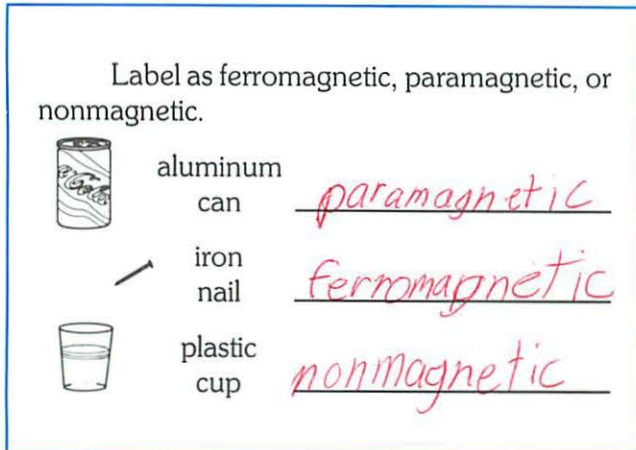 Label as ferromagnetic, paramagnetic, or
nonmagnetic.
aluminum
can
paramagnetic
iron
nail
ferromagnetic
plastic
cup
nonmagnetic